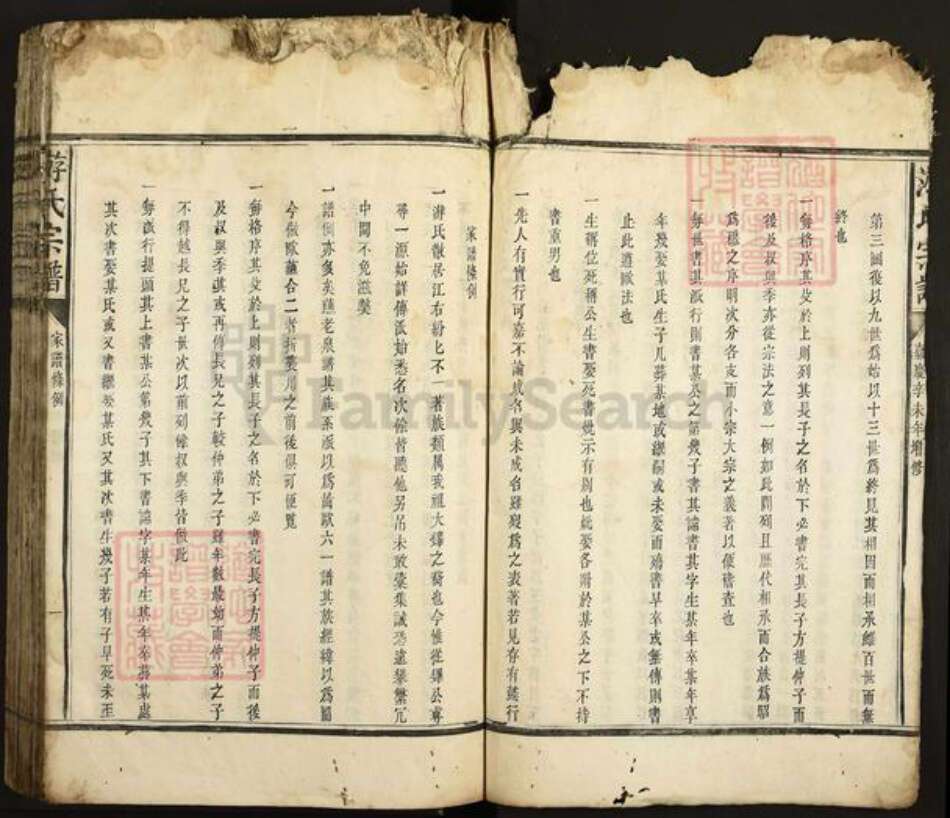 第三圖復以九世爲始以十三世爲終見其相因而相承雖百世而無
終也
一每格序其父於上則列其長子之名於下必書完其長子方提仲子而
後及叔與季亦從宗法之意一例如此閱列且歷代相承而合族爲昭
爲穆之序明次分各支而小宗大宗之義著以便稽查也
一每世書其派行則書某公之第幾子書其諱書其字生某年卒某年享
年幾娶某氏生子几葬某地或繼嗣或未娶而殤書早卒或無傳則書
止此遵歐法也
一生稱位死稱公生書娶死書妣示有别也妣娶各附於某公之下不待
書重男也
一先人有實行可嘉不論成名與未成名雖寢爲之表著若見存有懿行
游氏宗譜
嘉慶辛未年增修
家譜條例
一游氏散居江右紛匕不一著族類属我祖大嶧之裔也今惟從嶧公專
尋一源始詳傳派始悉名次餘皆聽他另吊未敢彙集誠恐遠舉繁冗
中間不免滋獘
一譜例亦多矣蘓老泉譜其族系派以爲蘓歐六一譜其族經緯以爲圖
今倣歐蘓合二者折衷用之前後俱可便覽
一每格序其父於上則列其長子之名於下必書完長子方提仲子而後
及叔與季或再傳長兄之子較仲弟之子雖年數最幼而仲弟之子
不得越長兄之子世次以前列餘叔與季皆倣此
一每派行提頭其上書某公第幾子其下書諱字某年生某年卒葬某處
其次書娶某氏或又書繼娶某氏又其次書生幾子若有子早死未至
游氏宗譜
家譜條例
一
FamilySearch